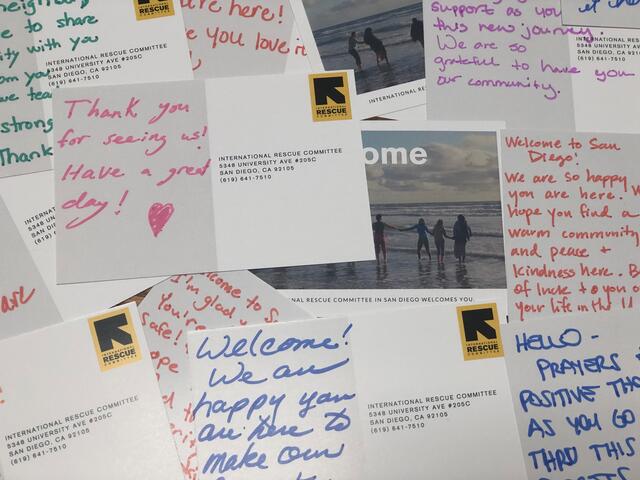 neighbor
e to share
ity with you
om you
ve tea
strong
Thank
RESCUE
INTERNATIONAL RESCUE COMMITTEE
5348 UNIVERSITY AVE #205C
SAN DIEGO, CA 92105
(619) 641-7510
are here!
e you love it
INTERNATIONAL RES
support as you
this new journey.
We are so
grateful to have you
our community.
INTERNATIONAL
5348 UNIVER
SAN DIEGO, C
(619) 641-75
Thank you
for seeing us!
Have a great
day!
INTERNATIONAL
RESCUE
COMMITTEE
INTERNATIONAL RESCUE COMMITTEE
5348 UNIVERSITY AVE #205C
SAN DIEGO, CA 92105
(619) 641-7510
ome
NAL RESCUE COMMITTEE IN SAN DIEGO WELCOMES YOU.
Welcome to San
Diego!
We are so happy
you are here.
hope you find a
warm community
and peace +
kindness here. B
of luck to you o
your life in the U
INTERN
5348 UN
SAN DI
(619) 6
are
lcome to S
I'm glad y
You're
safe!
ope
INTERNATIONAL
RESCUE
COMMITTEE
INTERNATIONAL RESCUE COMMITTEE
5348 UNIVERSITY AVE #205C
SAN DIEGO, CA 92105
(619) 641-7510
Welcome!
We are
happy you
are here to
make our
INTERNATIONAL
RESCUE
COMMITTEE
INTERNATIONAL RESCUE COMMITTEE
5348 UNIVERSITY AVE #205C
SAN DIEGO, CA 92105
(619) 641-7510
HELLO-
PRAYERS
POSITIVE THO
AS YOU GO
THRU THIS